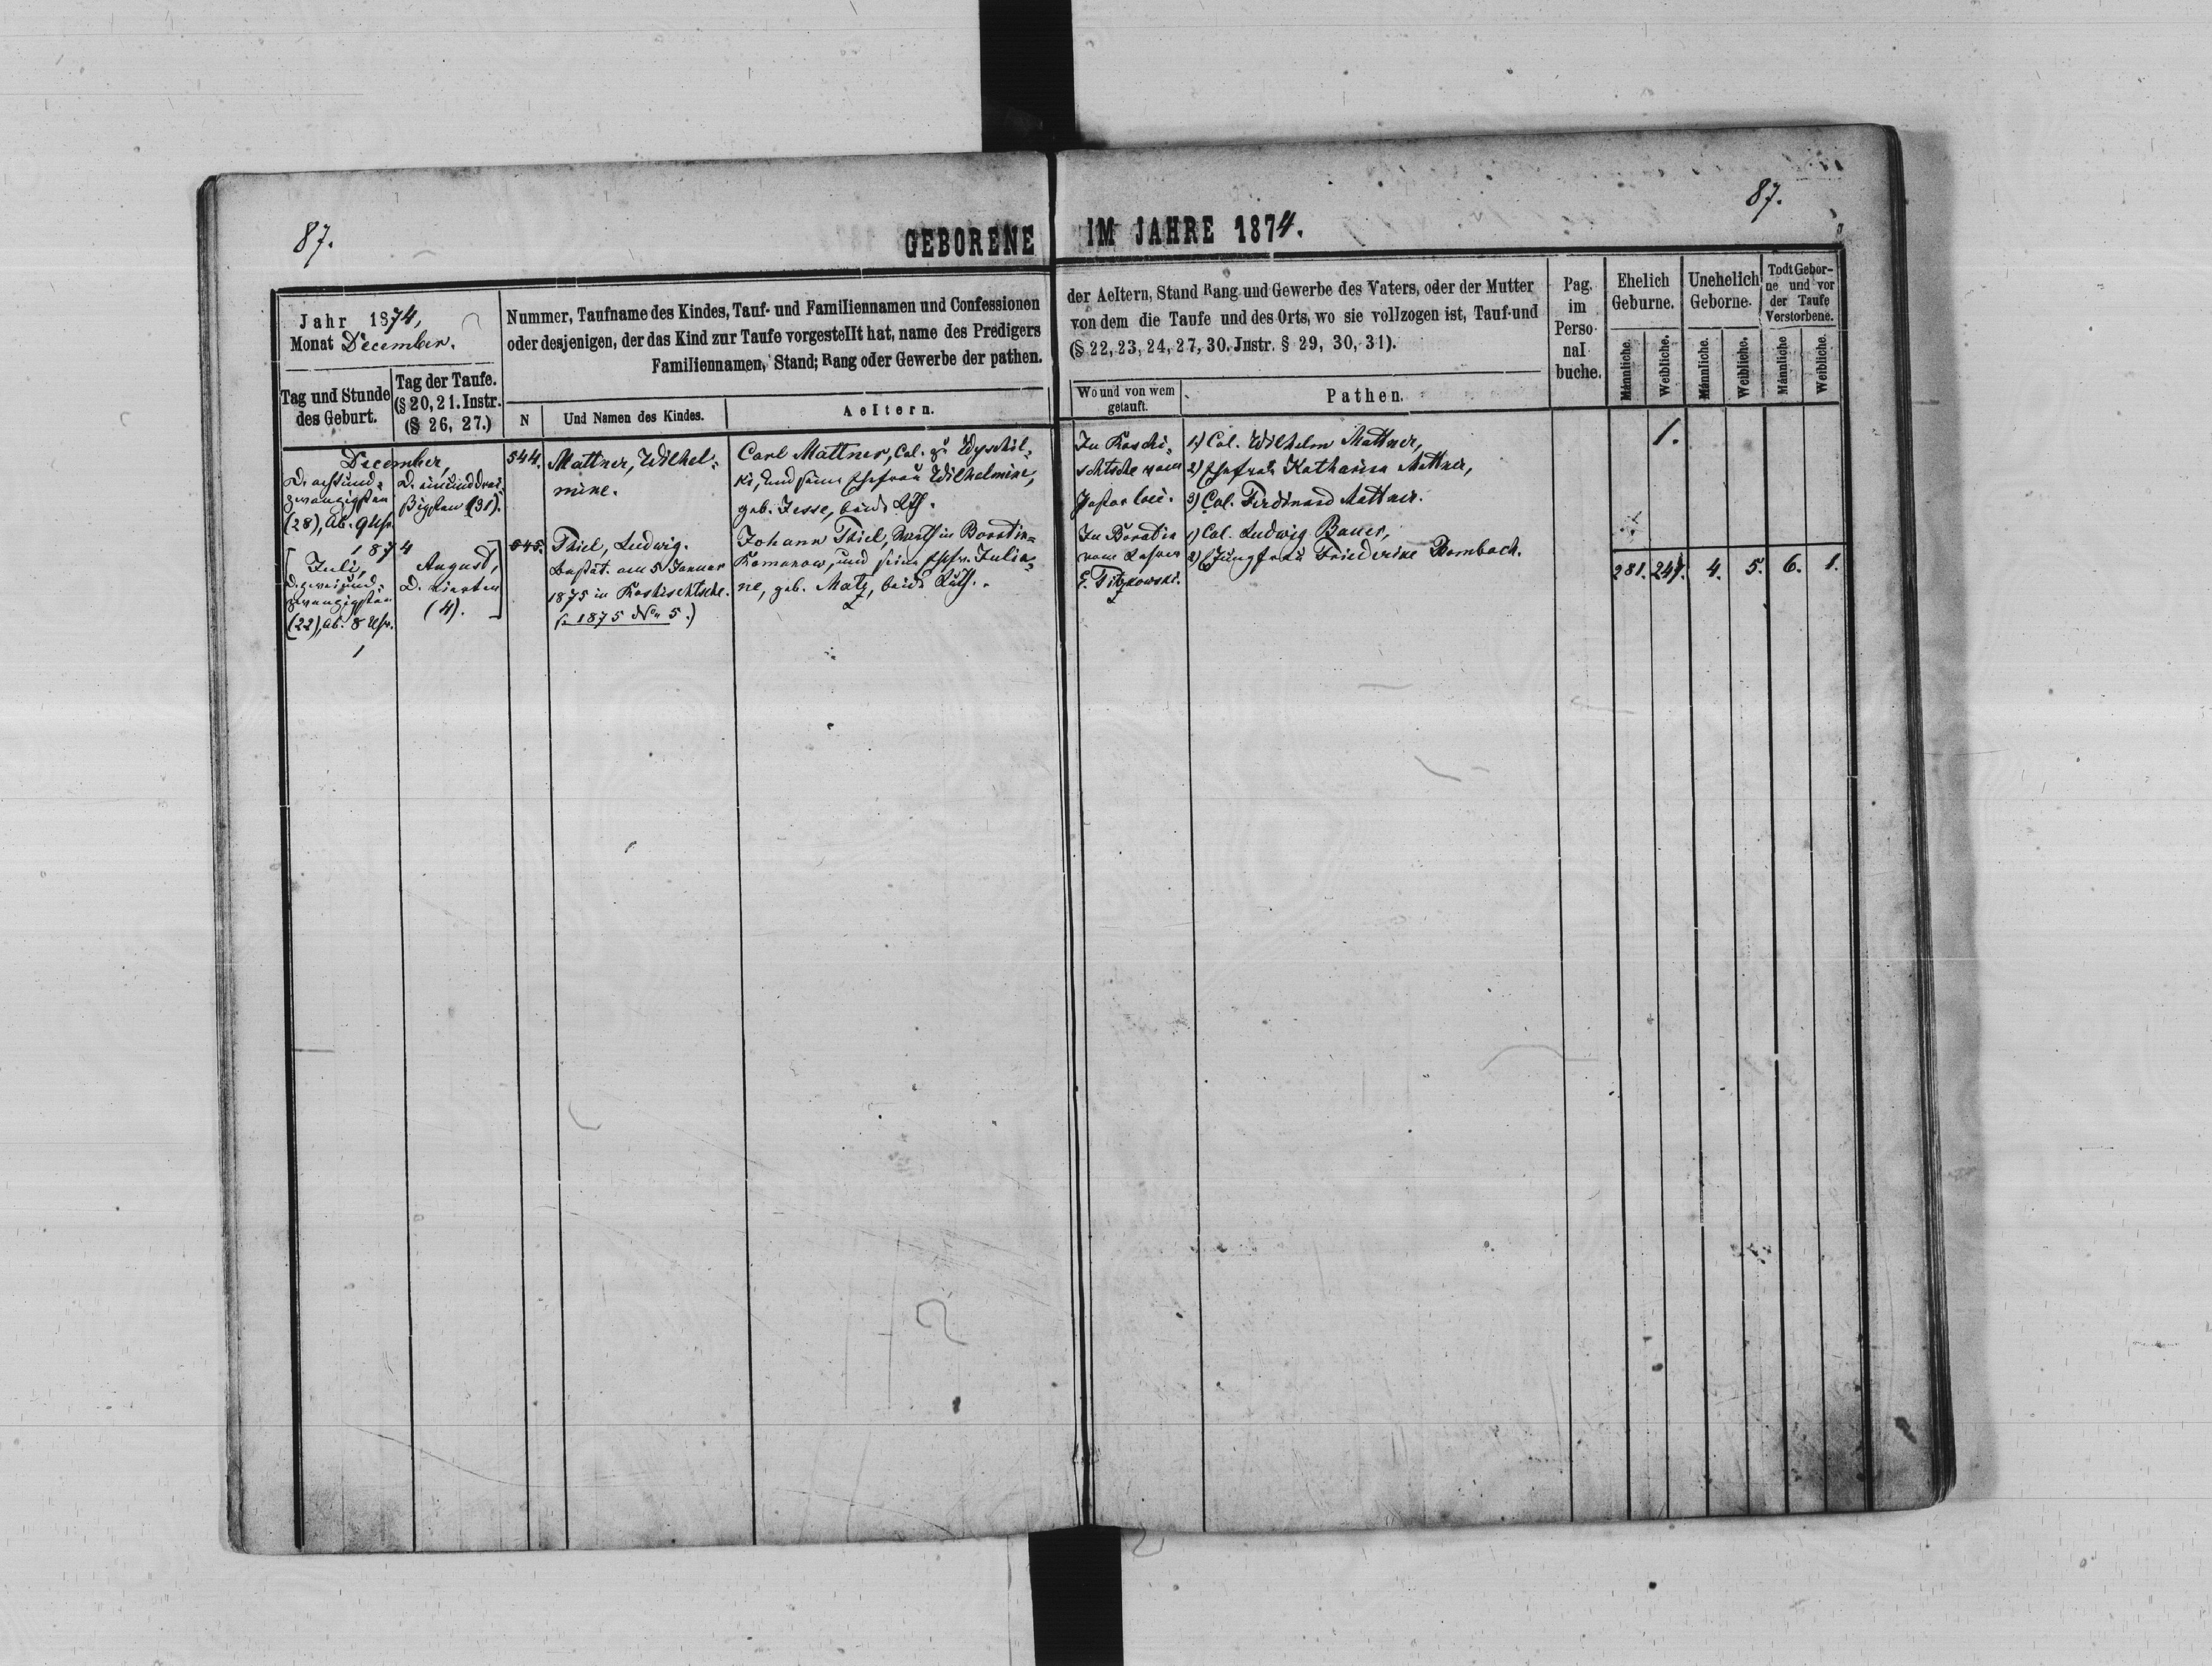 87.
GEBORENE IM JAHRE 1874.
87.
Jahr 1874,
Monat December.
Tag und Stunde
des Geburt.
Tag der Taufe.
(§ 20, 21. Instr.
(§ 26, 27.)
Nummer, Taufname des Kindes, Tauf- und Familiennamen und Confessionen
oder desjenigen, der das Kind zur Taufe vorgestellt hat, name des Predigers
Familiennamen, Stand; Rang oder Gewerbe der pathen.
N
Und Namen des Kindes.
Aeltern.
der Aeltern, Stand Rang und Gewerbe des Vaters, oder der Mutter
von dem die Taufe und des Orts, wo sie vollzogen ist, Tauf-und
(§ 22, 23, 24, 27, 30. Instr. § 29, 30, 31).
Wo und von wem
getauft.
Pathen.
Pag.
im
Perso-
nal
buche.
Ehelich
Geburne.
Unehelich
Geborne.
Todt Gebor-
ne und vor
der Taufe
Verstorbene.
Männliche.
Weibliche.
Männliche.
Weibliche.
Männliche
Weibliche.
December,
D. achtund-
zwanzigsten
(28), Ab. 9 Uhr.
D. einunddrei-
ßigsten (31).
544.
Mattner, Wilhel-
mine.
Carl Mattner, Col. zu Wyschil-
ki, und seine Ehefrau Wilhelmine,
geb. Jesse, beide Luth.
In Roschi-
schtsche vom
Pastor loci.
1) Col. Wilhelm Mattner,
2) Ehefrau Katharina Mattner,
3) Col. Ferdinand Mattner.
1.
1874
[Juli,
D. zweiund-
zwanzigsten
(22), Ab. 8 Uhr.
August,
D. vierten
(4).]
545.
Thiel, Ludwig.
Bestät. am 5 Januar
1875 in Roschischtsche.
(: 1875 No 5.)
Johann Thiel, Wirth in Boratin-
Romanow, und seine Ehefr. Julia-
ne, geb. Matz, beide Luth.
In Boratin
vom Lehrer
E. Titzkowski.
1) Col. Ludwig Bauer,
2) Jungfrau Friederike Bombach.
281. 247. 4. 5. 6. 1.